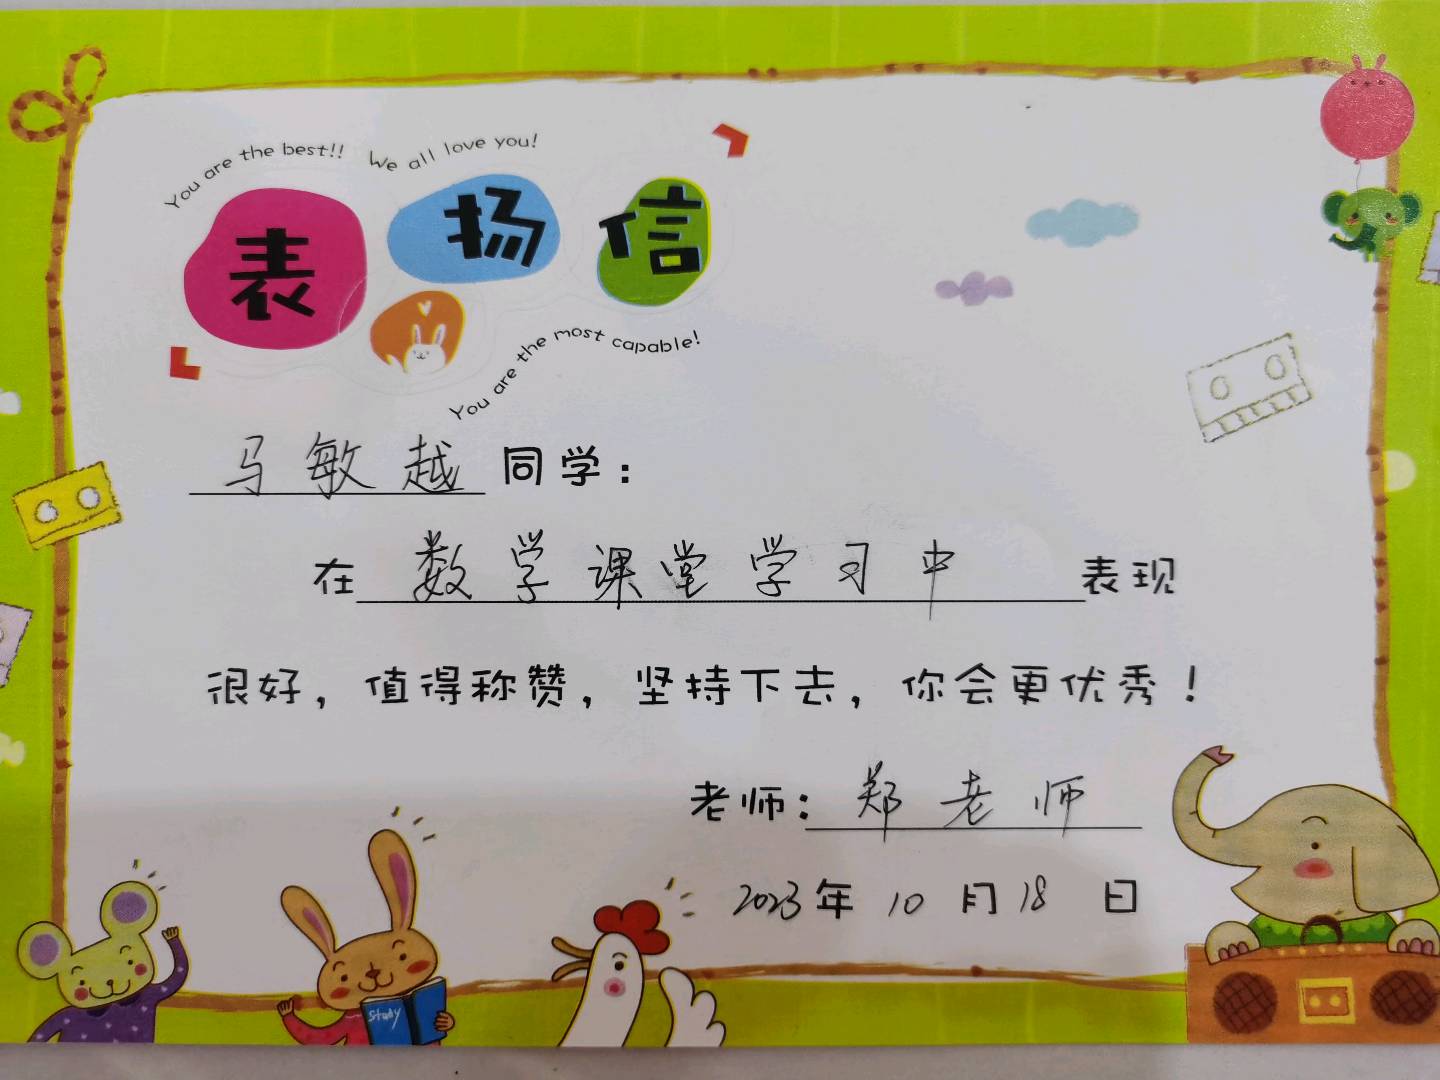 You are the best!! We all love you!
表扬信
You are the most capable!
马敏越同学：
在数学课堂学习中表现
很好，值得称赞，坚持下去，你会更优秀！
老师：郑老师
2023年10月18日
Study